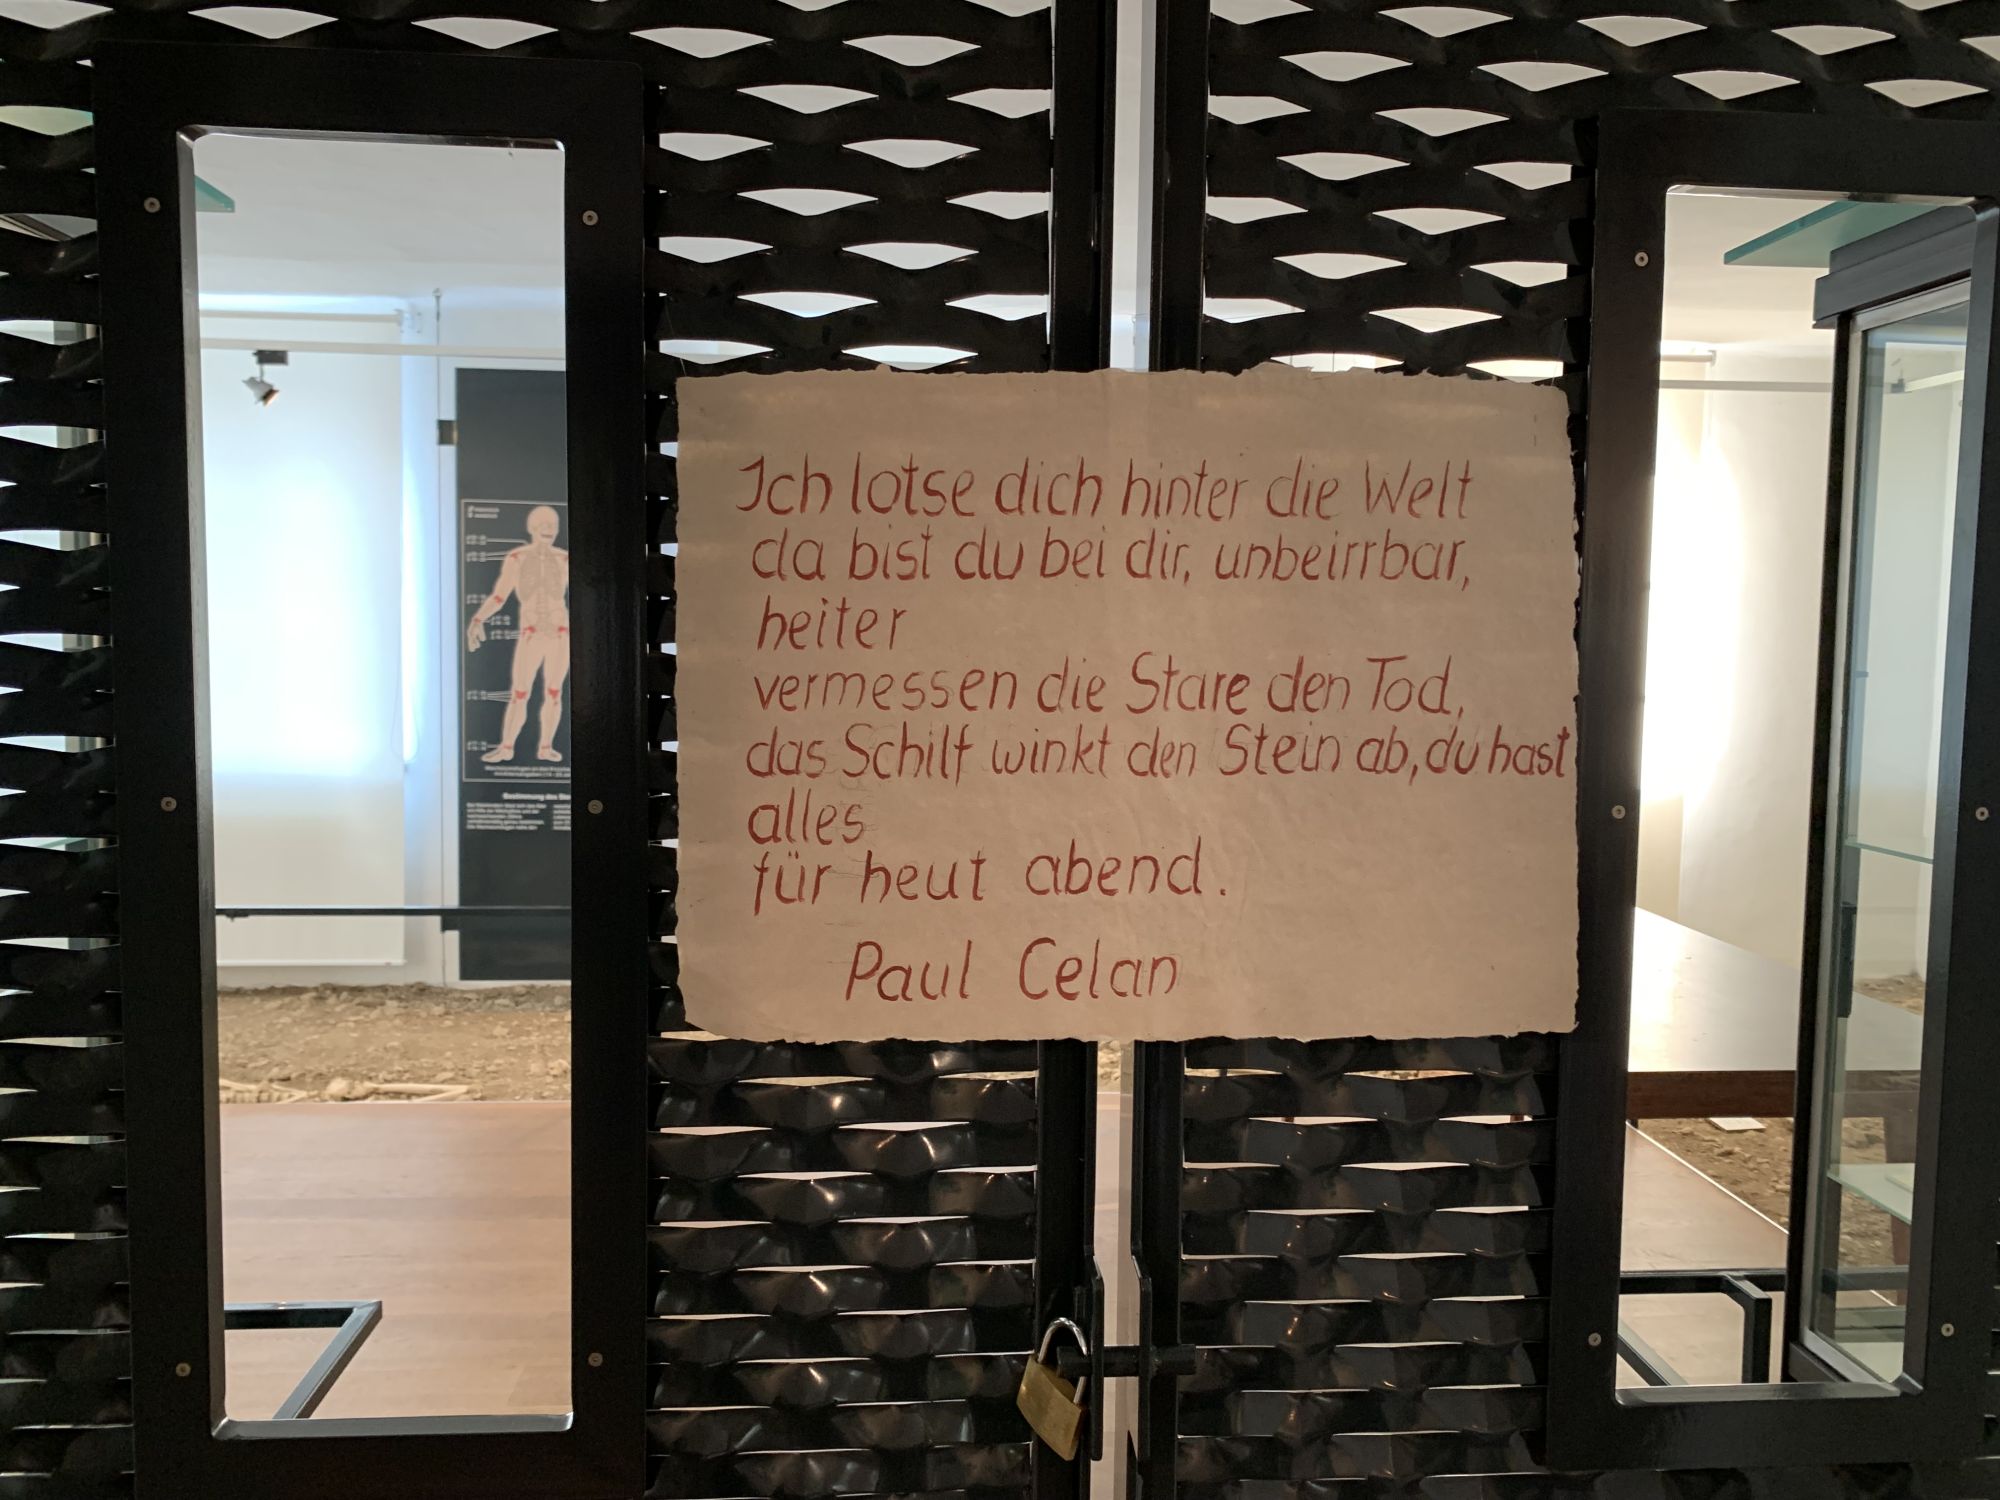 Ich lotse dich hinter die Welt
da bist du bei dir, unbeirrbar,
heiter
vermessen die Stare den Tod,
das Schilf winkt den Stein ab, du hast
alles
für heut abend.
Paul Celan